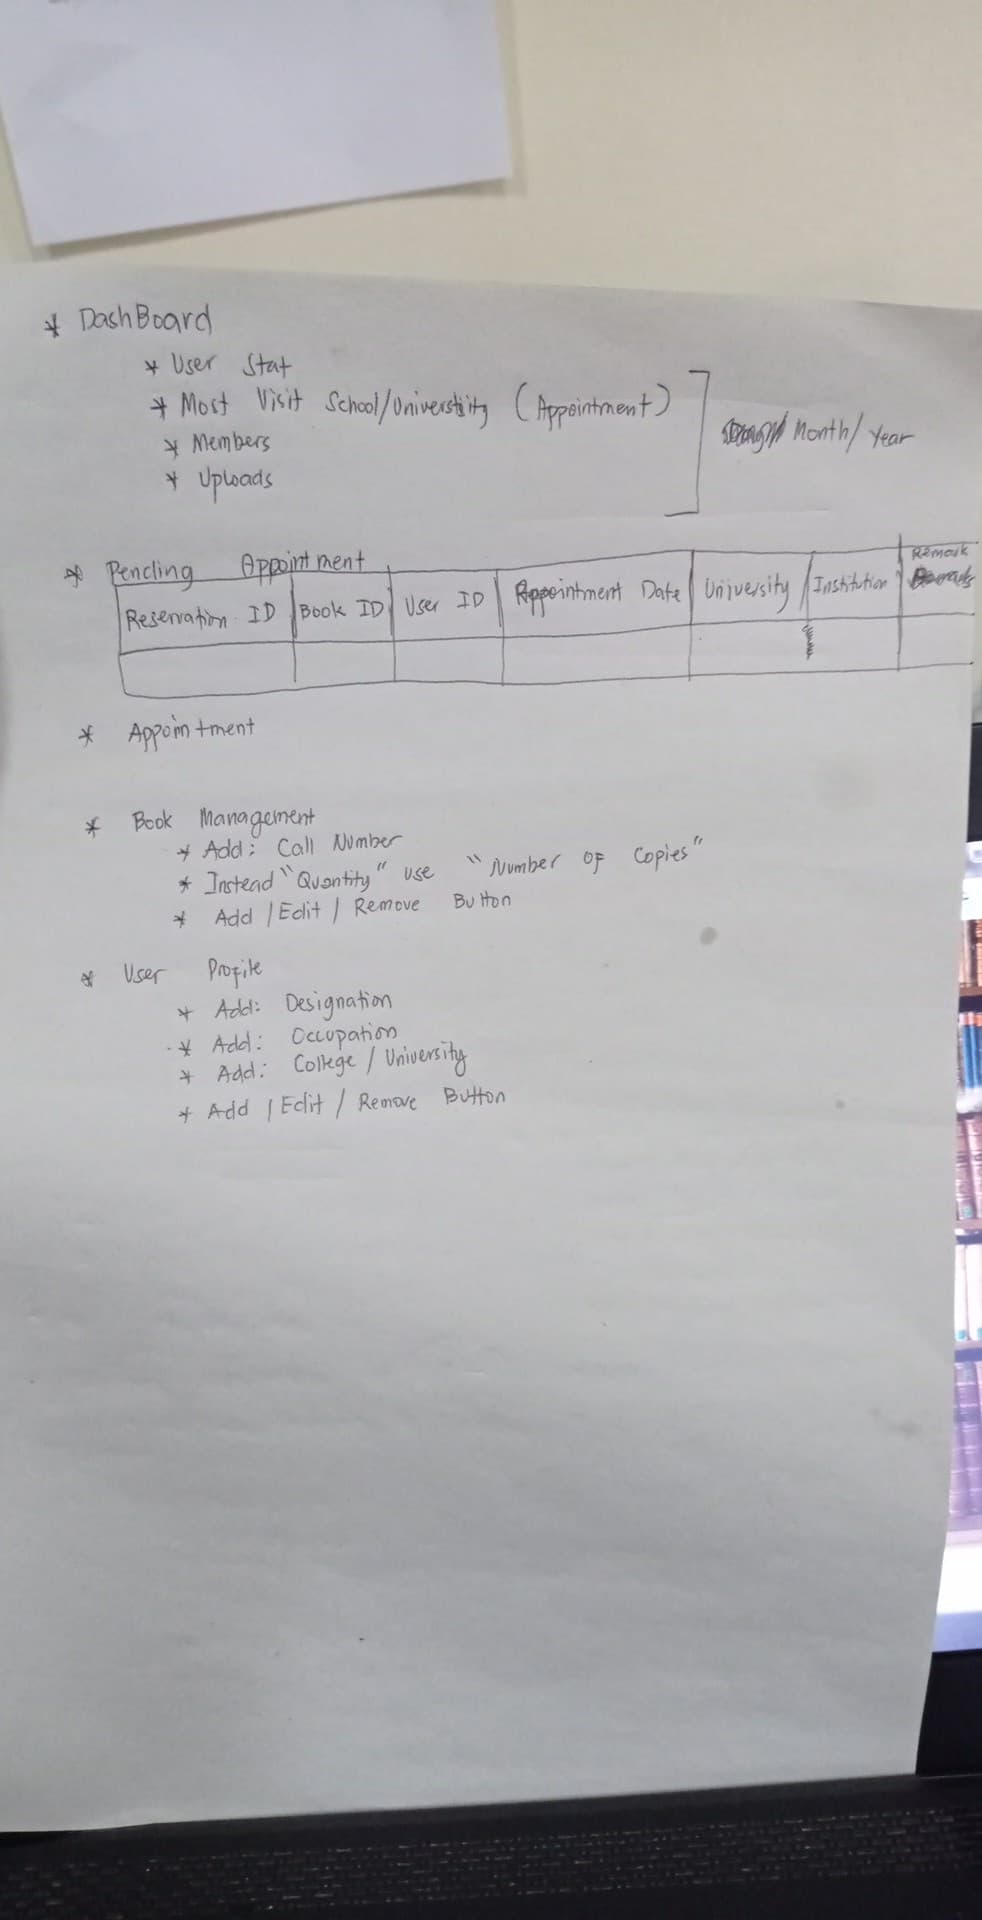 * DashBoard
* User Stat
* Most Visit School/Universtiity (Appointment)
* Members
* Uploads
Month/Year
* Pending Appointment
Reservation ID | Book ID | User ID | Appointment Date | University / Institution | Remark
* Appointment
* Book Management
* Add: Call Number
* Instead "Quantity" use "Number of Copies"
* Add / Edit / Remove Button
* User Profile
* Add: Designation
* Add: Occupation
* Add: College / University
* Add / Edit / Remove Button